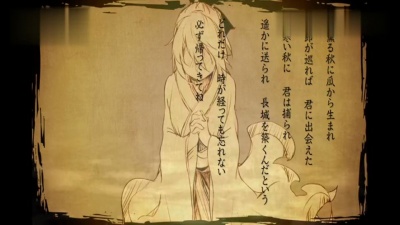 る秋に瓜から生まれ
節が巡れば 君に出会えた
い秋に 君は捕られ
遥かに送られ 長城を築くんだという
どれだけ 時が経っても忘れない
必ず帰ってきてね